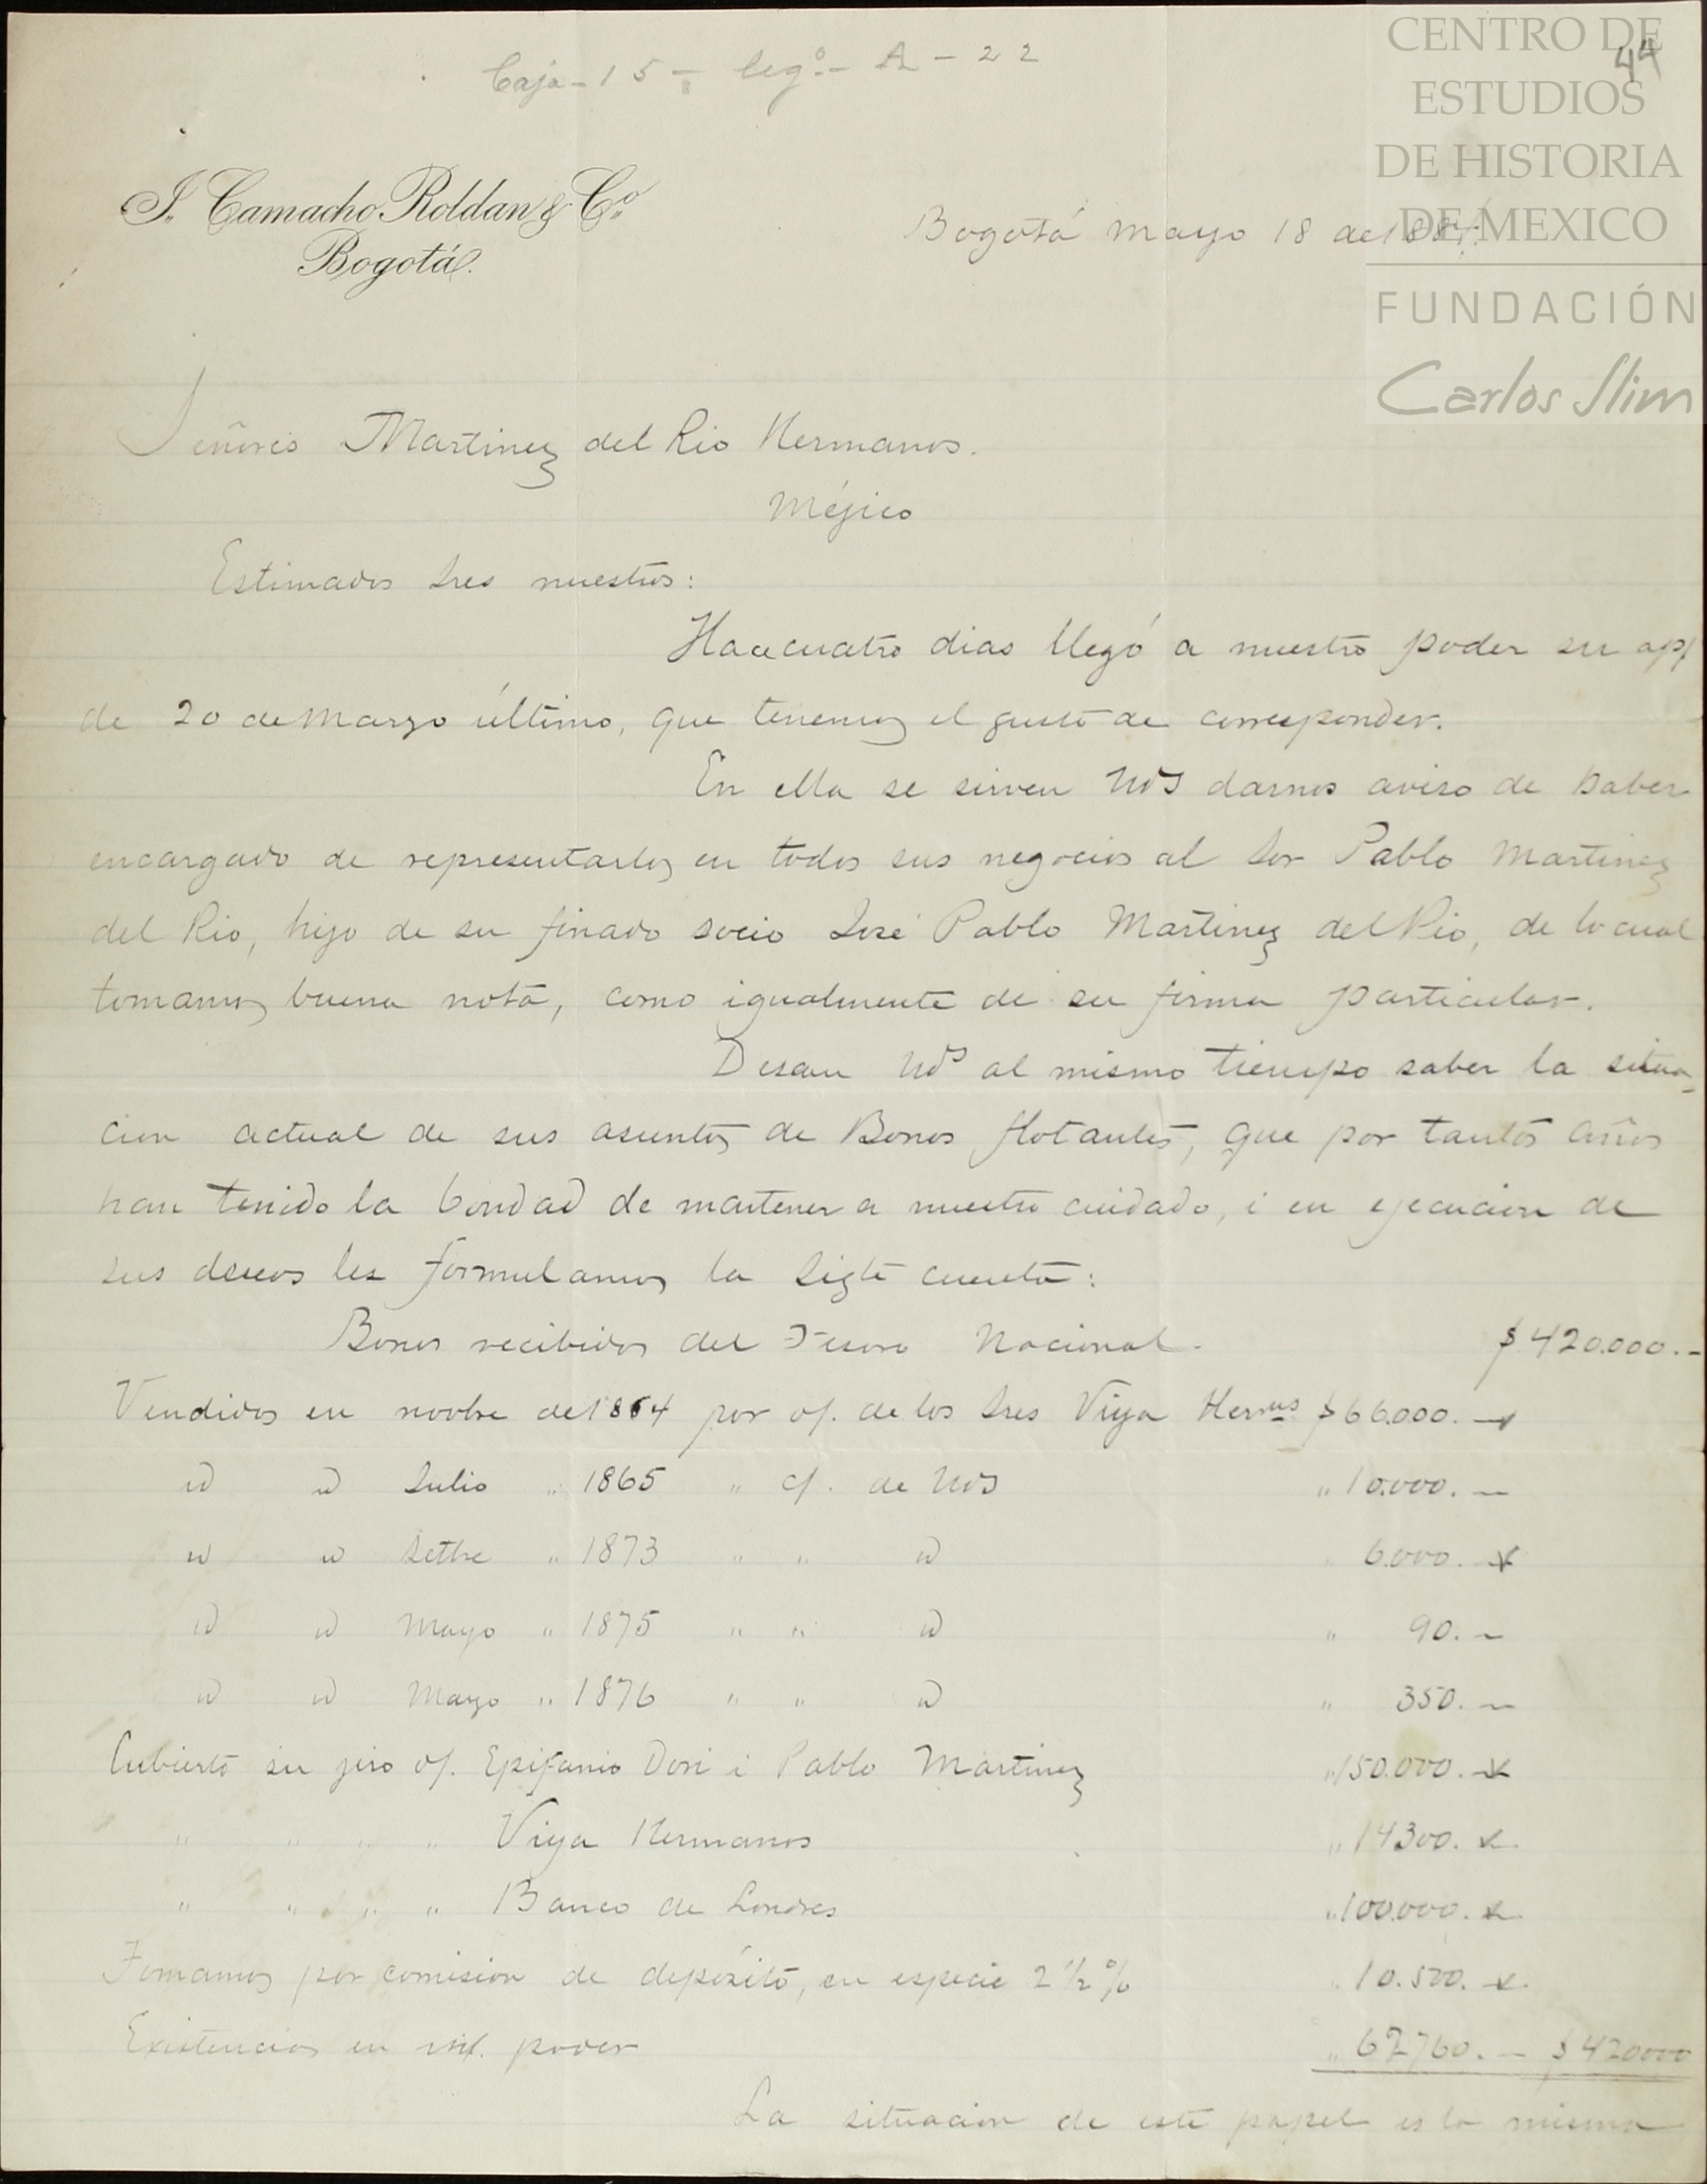 Caja - 15 - leg.º - A - 22
44
CENTRO DE
ESTUDIOS
DE HISTORIA
DE MEXICO
FUNDACIÓN
Carlos Slim
J. Camacho Roldan & Co.
Bogotá.
Bogotá Mayo 18 de 188
Señores Martinez del Rio Hermanos.
Méjico
Estimados Sres nuestros:
Hace cuatro dias llegó a nuestro poder su ap/
de 20 de Marzo último, que tenemos el gusto de corresponder.
En ella se sirven Uds darnos aviso de haber
encargado de representarlos en todos sus negocios al Sor Pablo Martinez
del Rio, hijo de su finado socio José Pablo Martinez del Rio, de lo cual
tomamos buena nota, como igualmente de su firma particular.
Desean Uds al mismo tiempo saber la situa-
cion actual de sus asuntos de Bonos flotantes, que por tantos años
han tenido la bondad de mantener a nuestro cuidado, i en ejecucion de
sus deseos les formulamos la sigte cuenta:
Bonos recibidos del Tesoro Nacional. $420.000.-
Vendidos en novbre de 1864 por o/. de los Sres Viya Hermos $66.000.-
id id Julio " 1865 " c/. de Uds " 10.000.-
id id Setbre " 1873 " " id " 6.000.-
id id Mayo " 1875 " " id " 90.-
id id Mayo " 1876 " " id " 350.-
Cubierto su jiro o/. Epifanio Dori i Pablo Martinez " 150.000.-
" " " " Viya Hermanos " 14300.
" " " " Banco de Londres " 100.000.
Tomamos por comision de depósito, en especie 2½% " 10.500.
Existencias en n/. poder " 62760.- $420000
La situacion de este papel es la misma